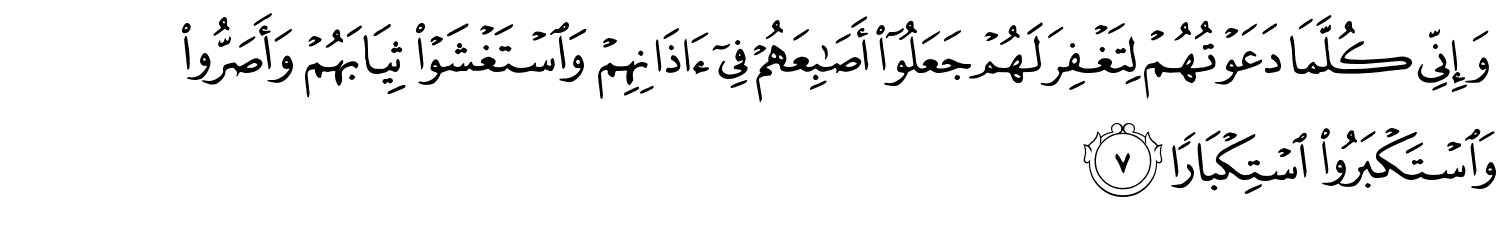 وَإِنِّي كُلَّمَا دَعَوْتُهُمْ لِتَغْفِرَ لَهُمْ جَعَلُوٓا۟ أَصَـٰبِعَهُمْ فِىٓ ءَاذَانِهِمْ وَٱسْتَغْشَوْا۟ ثِيَابَهُمْ وَأَصَرُّوا۟
وَٱسْتَكْبَرُوا۟ ٱسْتِكْبَارًا ٧